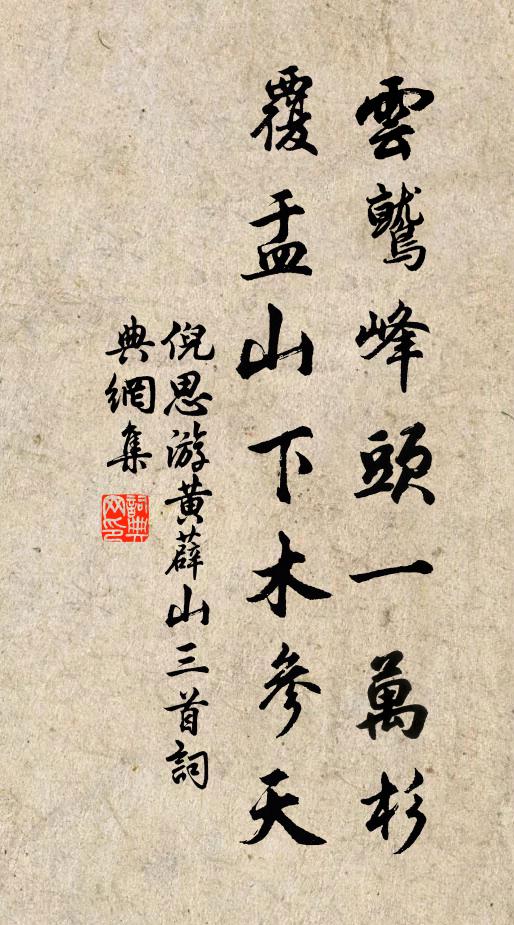 雲鷲峰頭一萬杉
覆盂山下木參天
倪思游黄薜山三首詞
典網集
詞典網印